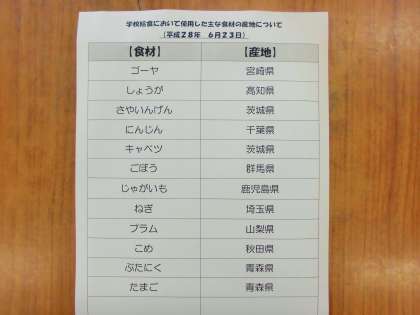 学校給食において使用した主な食材の産地について
(平成28年 6月23日)
【食材】 【産地】
ゴーヤ 宮崎県
しょうが 高知県
さやいんげん 茨城県
にんじん 千葉県
キャベツ 茨城県
ごぼう 群馬県
じゃがいも 鹿児島県
ねぎ 埼玉県
プラム 山梨県
こめ 秋田県
ぶたにく 青森県
たまご 青森県